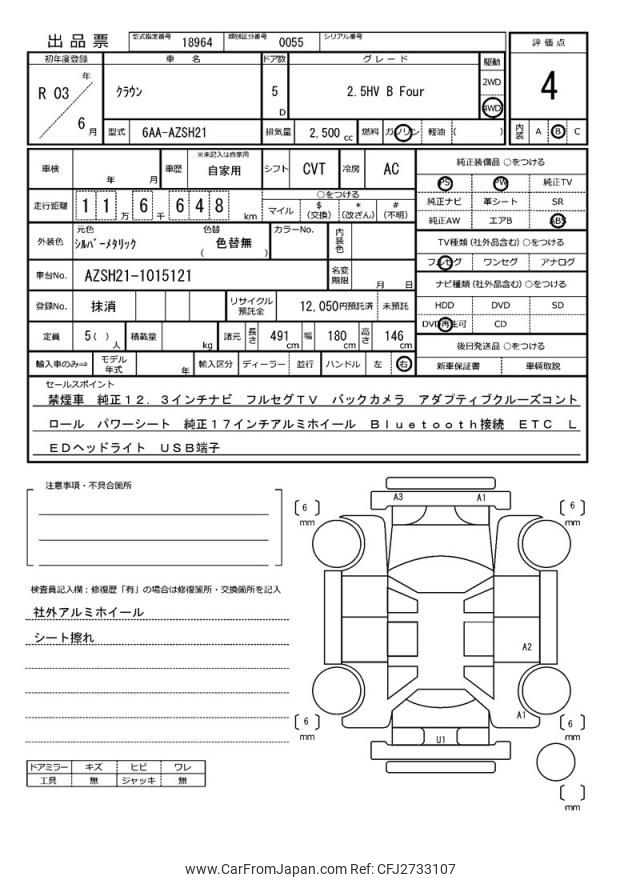 出品票 型式指定番号 18964 類別区分番号 0055 シリアル番号
評価点
4
初年度登録 車名 ドア数 グレード 駆動
R 03 年 6 月 クラウン 5 D 2.5HV B Four 2WD 4WD
型式 6AA-AZSH21 排気量 2,500 cc 燃料 ガソリン 軽油 ( ) 内装 A B C
車検 年 月 車歴 ※未記入は自家用 自家用 シフト CVT 冷房 AC
走行距離 1 1 万 6 千 6 4 8 km ○をつける マイル $ (交換) * (改ざん) # (不明)
外装色 元色 シルバーメタリック 色替 ( 色替無 ) カラーNo. 内装色
車台No. AZSH21-1015121 名変期限 月 日
登録No. 抹消 リサイクル預託金 12,050円預託済 未預託
定員 5 ( ) 人 積載量 kg 諸元 長さ 491 cm 幅 180 cm 高さ 146 cm
輸入車のみ⇒ モデル年式 年 輸入区分 ディーラー 並行 ハンドル 左 右
純正装備品 ○をつける
PS PW 純正TV
純正ナビ 革シート SR
純正AW エアB ABS
TV種類 (社外品含む) ○をつける
フルセグ ワンセグ アナログ
ナビ種類 (社外品含む) ○をつける
HDD DVD SD
DVD再生可 CD
後日発送品 ○をつける
新車保証書 車輌取説
セールスポイント
禁煙車 純正12.3インチナビ フルセグTV バックカメラ アダプティブクルーズコント
ロール パワーシート 純正17インチアルミホイール Bluetooth接続 ETC L
EDヘッドライト USB端子
注意事項・不具合箇所
検査員記入欄：修復歴「有」の場合は修復箇所・交換箇所を記入
社外アルミホイール
シート擦れ
ドアミラー キズ ヒビ ワレ
工具 無 ジャッキ 無
A3 A1
( 6 ) mm ( 6 ) mm
A2
A1
( 6 ) mm ( 6 ) mm
U1
( ) mm
www.CarFromJapan.com Ref: CFJ2733107